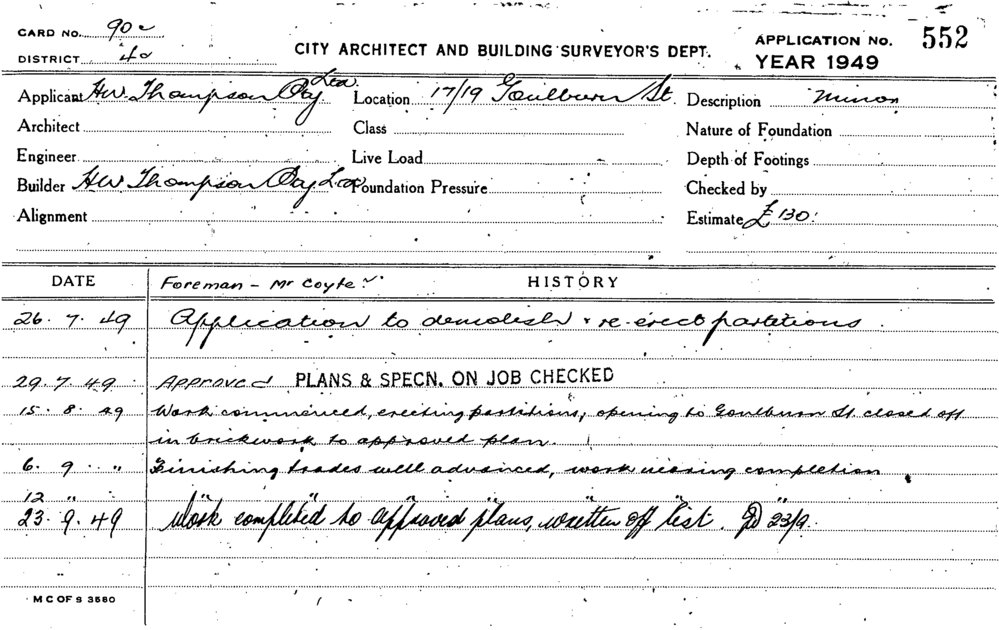 CARD NO. 90c
DISTRICT 4a
CITY ARCHITECT AND BUILDING SURVEYOR'S DEPT.
APPLICATION No. 552
YEAR 1949
Applicant H W Thompson Pty Ltd. Location 17/19 Goulburn St. Description Minor
Architect Class Nature of Foundation
Engineer Live Load Depth of Footings
Builder H W Thompson Pty Ltd. Foundation Pressure Checked by
Alignment Estimate £ 130.
DATE Foreman - Mr Coyte HISTORY
26. 7. 49 Application to demolish & re-erect partitions
29. 7. 49 Approved PLANS & SPECN. ON JOB CHECKED
15. 8. 49 Work commenced, erecting partitions, opening to Goulburn St. closed off
in brickwork to approved plan.
6. 9. " Finishing trades well advanced, work nearing completion
12 " " " " " " "
23. 9. 49 Work completed to approved plans, written off list. 23/9.
M C OF S 3580